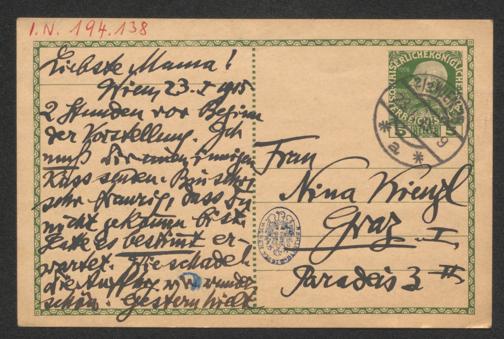 I.N. 194.138
Liebste Mama!
Wien, 23. I 1915
2 Stunden vor Beginn
der Vorstellung. Ich
muß Dir einen innigen
Kuss senden. Bin sehr,
sehr grantig, dass Du
nicht gekommen bist.
Hatte es bestimmt er-
wartet. Wie schade!
Die Aufführung wunder
schön. Gestern hielt
KAISERLICHE KÖNIGLICHE
5 HELLER 5
Frau
Nina Kienzl
Graz I.
Paradeis 3 II